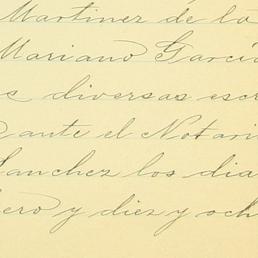 Martinez de la
Mariano Garcí
s diversas escr
ante el Notari
Sanchez los dia
ero y diez y och